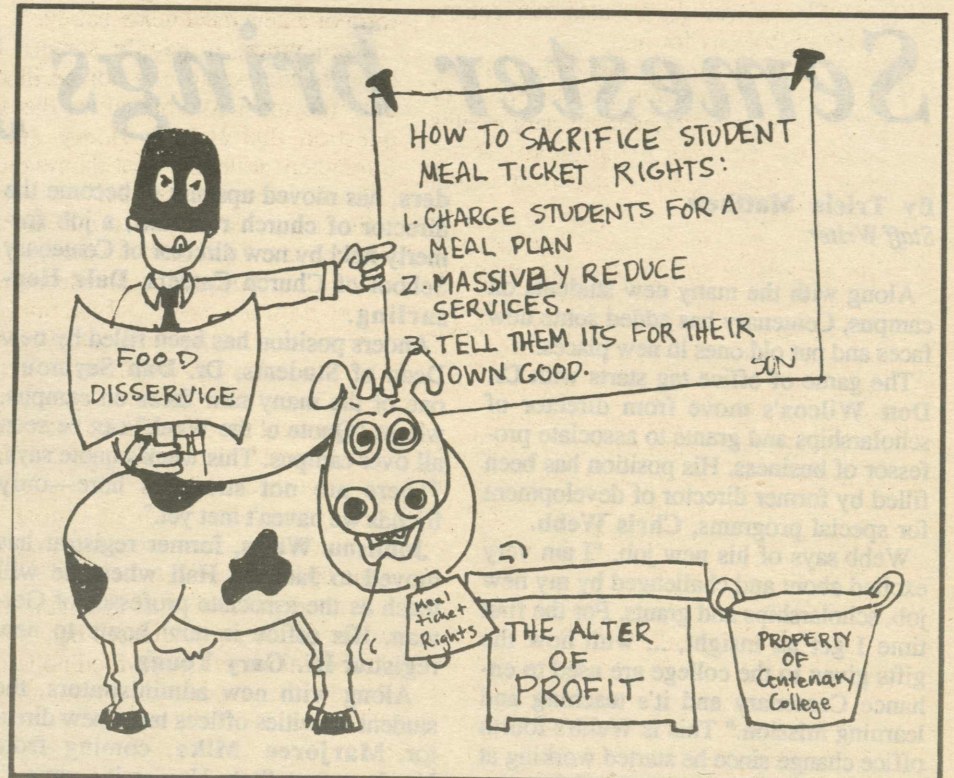 HOW TO SACRIFICE STUDENT
MEAL TICKET RIGHTS:
1. CHARGE STUDENTS FOR A
MEAL PLAN
2. MASSIVELY REDUCE
SERVICES.
3. TELL THEM ITS FOR THEIR
OWN GOOD.
FOOD
DISSERVICE
Meal
Ticket
Rights
THE ALTER
OF
PROFIT
PROPERTY
OF
Centenary
College